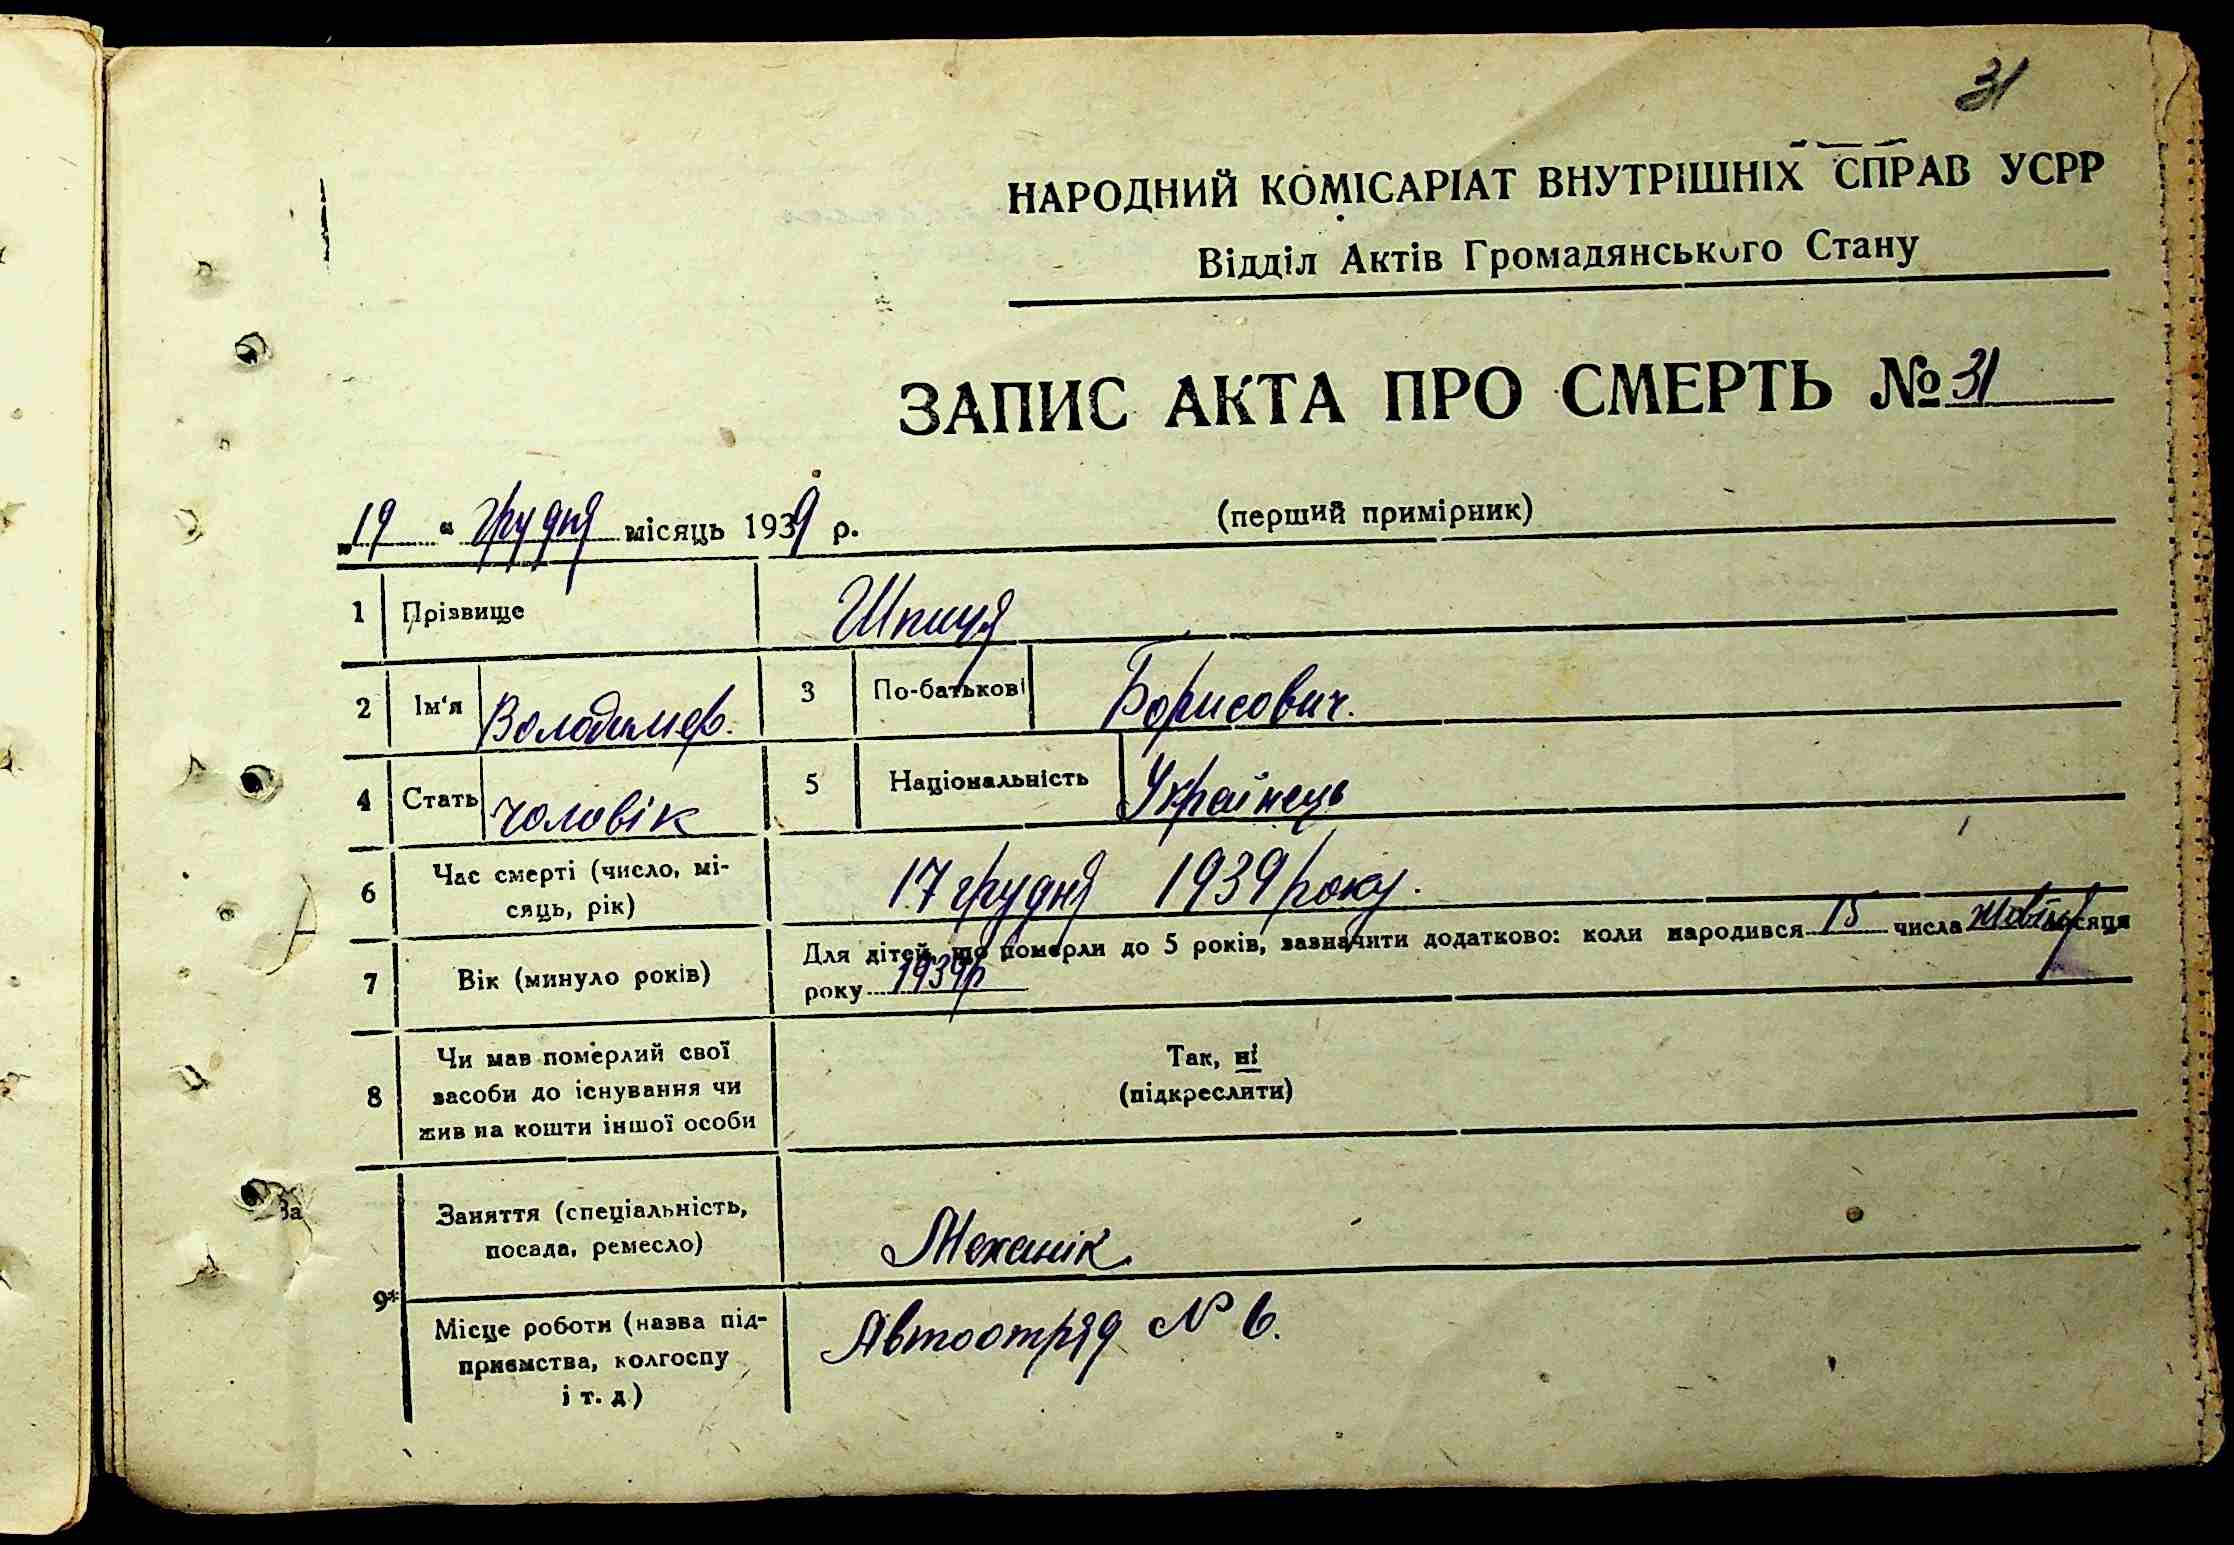 31
НАРОДНИЙ КОМІСАРІАТ ВНУТРІШНІХ СПРАВ УСРР
Відділ Актів Громадянського Стану
ЗАПИС АКТА ПРО СМЕРТЬ № 31
„19 “ грудня місяць 1939 р.
(перший примірник)
1 Прізвище Шпиця
2 Ім'я Володимер. 3 По-батькові Борисович.
4 Стать чоловік 5 Національність Українець
6 Час смерті (число, мі-
сяць, рік) 17 грудня 1939 року.
7 Вік (минуло років) Для дітей, що померли до 5 років, зазначити додатково: коли народився 15 числа місяця
року 1939р
8 Чи мав померлий свої
засоби до існування чи
жив на кошти іншої особи
Так, ні
(підкреслити)
За
9* Заняття (спеціальність,
посада, ремесло) Механік.
Місце роботи (назва під-
приємства, колгоспу
і т. д.) Автоотряд № 6.